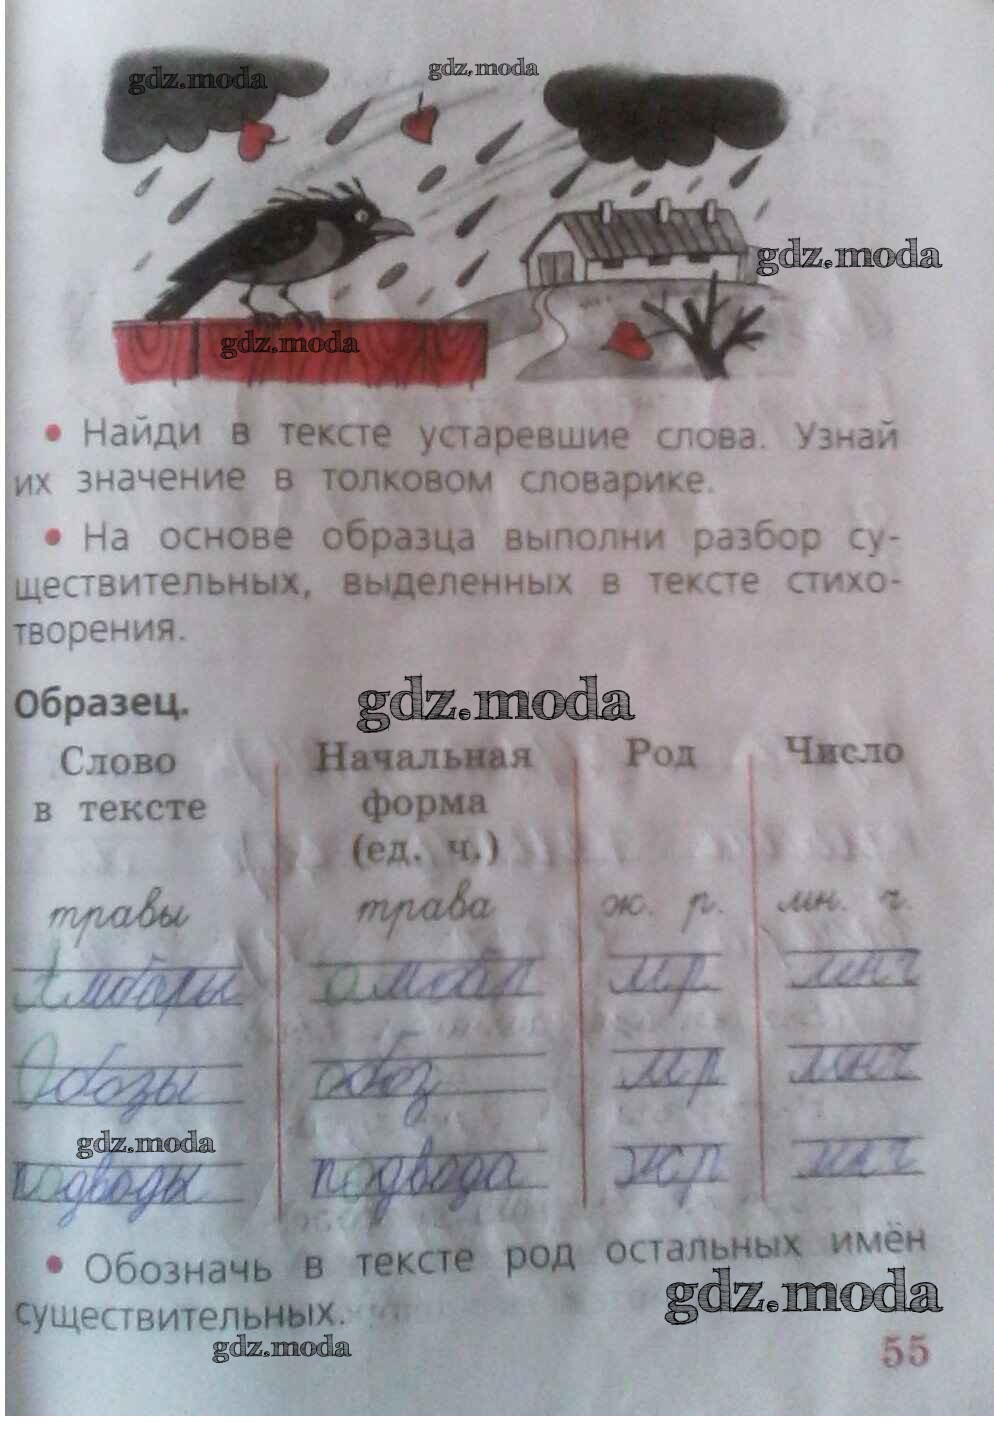 gdz.moda
gdz.moda
gdz.moda
gdz.moda
• Найди в тексте устаревшие слова. Узнай
их значение в толковом словарике.
• На основе образца выполни разбор су-
ществительных, выделенных в тексте стихо-
творения.
Образец.
gdz.moda
Слово в тексте Начальная форма (ед. ч.) Род Число
травы трава ж. р. мн. ч.
Амбары амбар мр мнч
Обозы обоз мр мнч
gdz.moda
подводы подвода жр мнч
• Обозначь в тексте род остальных имён
существительных.
gdz.moda
gdz.moda
55